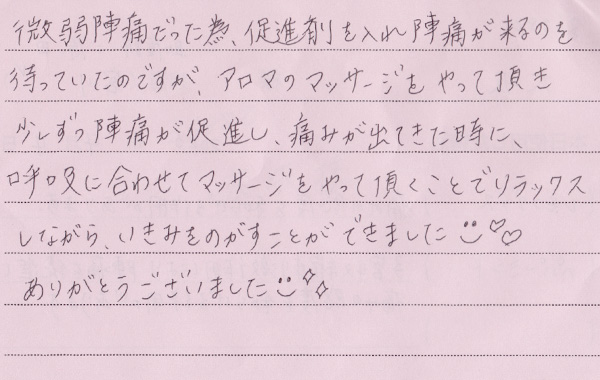 微弱陣痛だった為、促進剤を入れ陣痛が来るのを
待っていたのですが、アロマのマッサージをやって頂き
少しずつ陣痛が促進し、痛みが出てきた時に、
呼吸に合わせてマッサージをやって頂くことでリラックス
しながら、いきみをのがすことができました
ありがとうございました